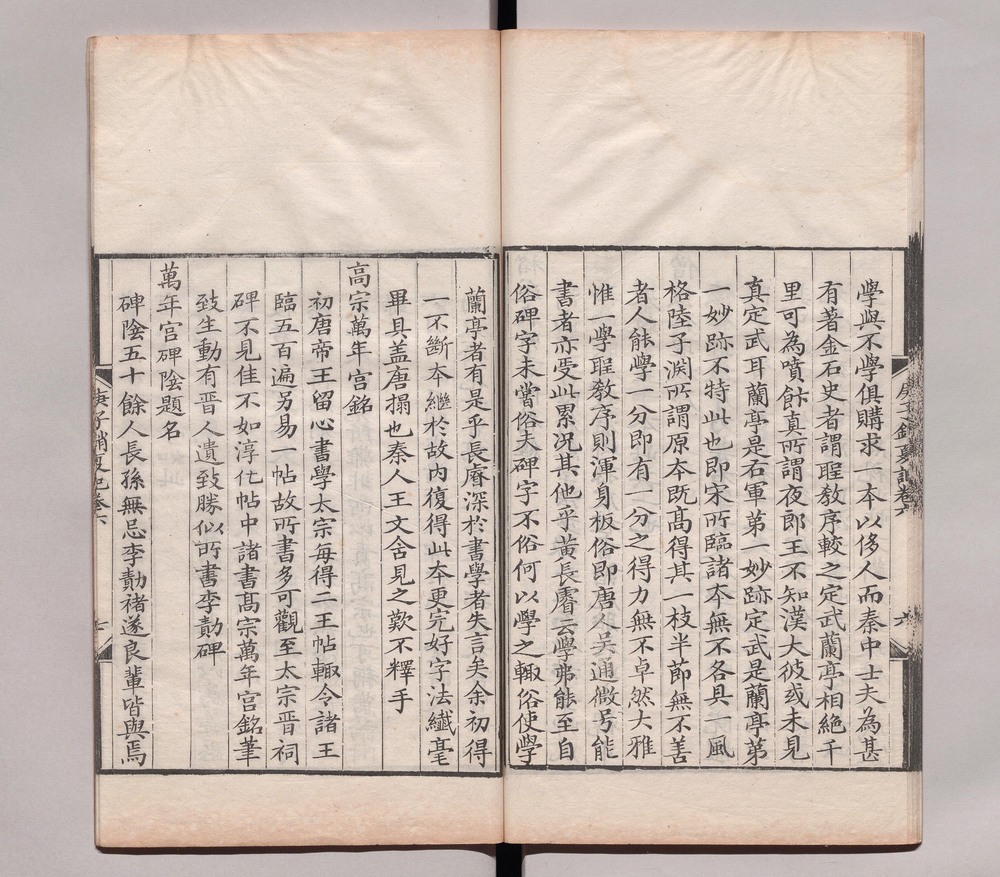 學與不學俱購求一本以侈人而秦中士夫為甚
有著金石史者謂聖教序較之定武蘭亭相絕千
里可為噴飯真所謂夜郎王不知漢大彼或未見
真定武耳蘭亭是右軍第一妙跡定武是蘭亭第
一妙跡不特此也即宋所臨諸本無不各具一風
格陸子淵所謂原本既髙得其一枝半節無不善
者人能學一分即有一分之得力無不卓然大雅
惟一學聖敎序則渾身板俗即唐人吴通微号能
書者亦受此累况其他乎黃長睿云學弗能至自
俗碑字未嘗俗夫碑字不俗何以學之輙俗使學
蘭亭者有是乎長睿深於書學者失言矣余初得
一不斷本繼於故內復得此本更完好字法纎毫
畢具盖唐搨也秦人王文含見之歎不釋手
高宗萬年宮銘
初唐帝王留心書學太宗每得二王帖輙令諸王
臨五百遍另易一帖故所書多可觀至太宗晋祠
碑不見佳不如淳化帖中諸書髙宗萬年宮銘筆
致生動有晋人遺致勝似所書李勣碑
萬年宫碑陰題名
碑陰五十餘人長孫無忌李勣褚遂良輩皆與焉
庚子銷夏記卷六
七